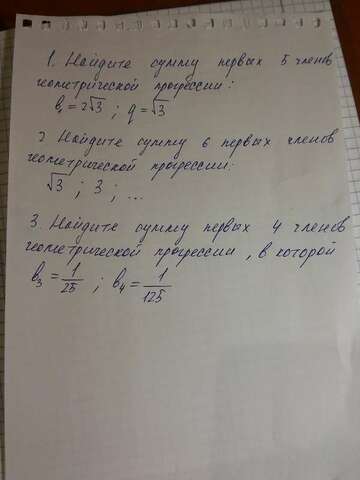 1. Найдите сумму первых 5 членов
геометрической прогрессии:
b₁ = 2√3 ; q = √3
2. Найдите сумму 6 первых членов
геометрической прогрессии:
√3 ; 3 ; ...
3. Найдите сумму первых 4 членов
геометрической прогрессии, в которой
b₃ = 1/25 ; b₄ = 1/125